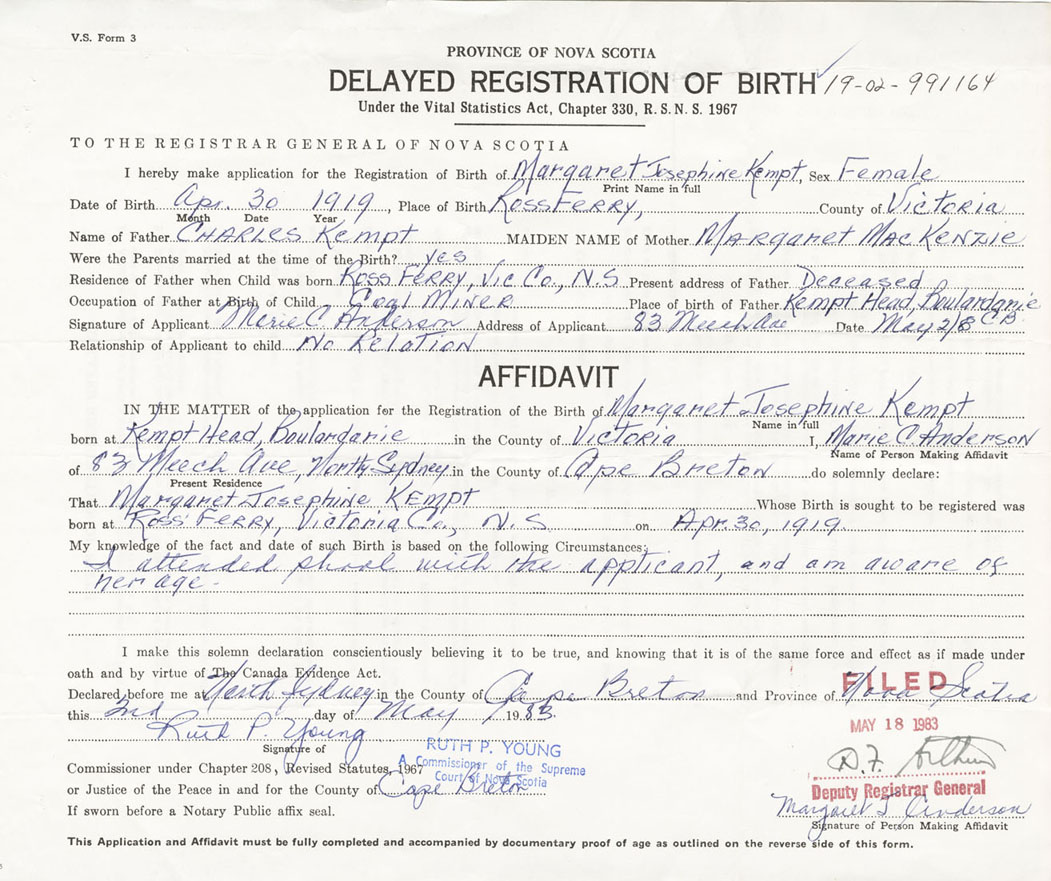 V.S. Form 3
PROVINCE OF NOVA SCOTIA
DELAYED REGISTRATION OF BIRTH 19-02-991164
Under the Vital Statistics Act, Chapter 330, R.S.N.S. 1967
TO THE REGISTRAR GENERAL OF NOVA SCOTIA
I hereby make application for the Registration of Birth of Margaret Josephine Kempt, Sex Female
Print Name in full
Date of Birth Apr. 30 1919, Place of Birth Ross Ferry, County of Victoria
Month Date Year
Name of Father CHARLES Kempt MAIDEN NAME of Mother MARGARET MACKENZIE
Were the Parents married at the time of the Birth? yes
Residence of Father when Child was born Ross Ferry, Vic Co., N.S Present address of Father Deceased
Occupation of Father at Birth of Child Coal Miner Place of birth of Father Kempt Head, Boulardarie
Signature of Applicant Marie C Anderson Address of Applicant 83 Meech Ave Date May 2/8 CB
Relationship of Applicant to child No Relation
AFFIDAVIT
IN THE MATTER of the application for the Registration of the Birth of Margaret Josephine Kempt
Name in full
born at Kempt Head, Boulardarie in the County of Victoria I, Marie C Anderson
Name of Person Making Affidavit
of 83 Meech Ave, North Sydney in the County of Cape Breton do solemnly declare:
Present Residence
That Margaret Josephine Kempt Whose Birth is sought to be registered was
born at Ross Ferry, Victoria Co., N.S on Apr. 30, 1919.
My knowledge of the fact and date of such Birth is based on the following Circumstances:
I attended shool with the applicant, and am aware of
her age.
I make this solemn declaration conscientiously believing it to be true, and knowing that it is of the same force and effect as if made under
oath and by virtue of The Canada Evidence Act.
Declared before me at North Sydney in the County of Cape Breton and Province of Nova Scotia
FILED
this 2nd day of May 1983.
MAY 18 1983
Ruth P. Young
Signature of
RUTH P. YOUNG
A Commissioner of the Supreme
Court of Nova Scotia
D.F.
Commissioner under Chapter 208, Revised Statutes, 1967
or Justice of the Peace in and for the County of Cape Breton
Deputy Registrar General
If sworn before a Notary Public affix seal.
Margaret J Anderson
Signature of Person Making Affidavit
This Application and Affidavit must be fully completed and accompanied by documentary proof of age as outlined on the reverse side of this form.